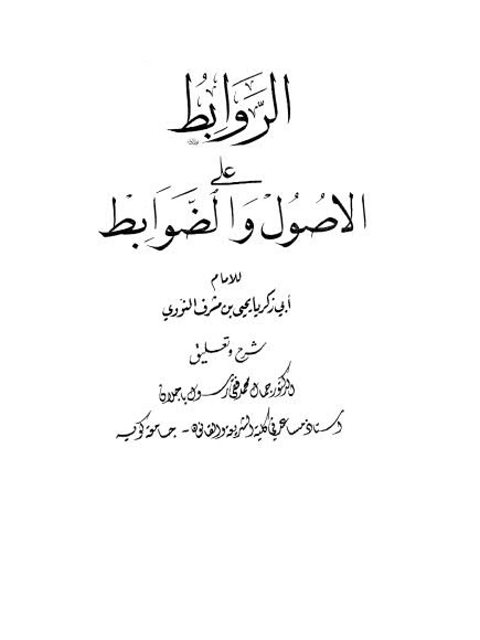 الرَّوَابِط
على
الاصُول وَالضَّوَابِط
للامام
أبي زكريا يحيى بن شرف النووي
شرح وتعليق
الدكتور جمال محمد فقي رسول باجلان
استاذ مساعد في كلية الشريعة والقانون - جامعة كويه